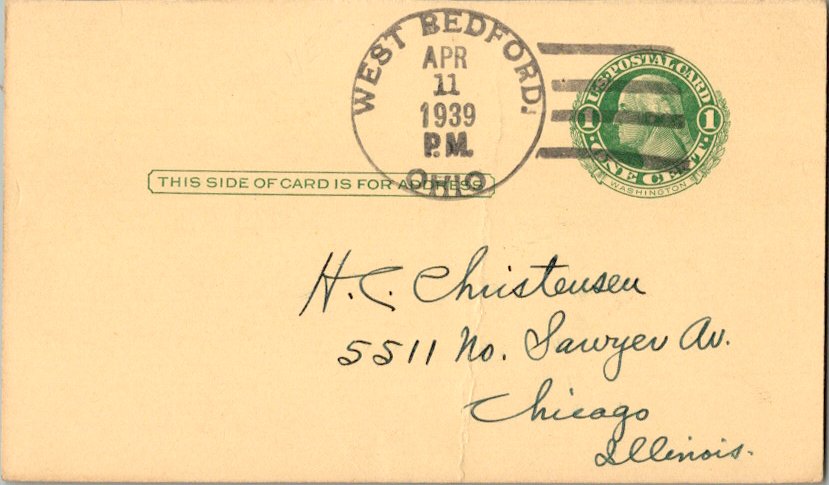 WEST BEDFORD,
APR
11
1939
P.M.
OHIO
U.S. POSTAL CARD
1 1
ONE CENT
WASHINGTON
THIS SIDE OF CARD IS FOR ADDRESS
H. C. Christensen
5511 No. Sawyer Av.
Chicago
Illinois.